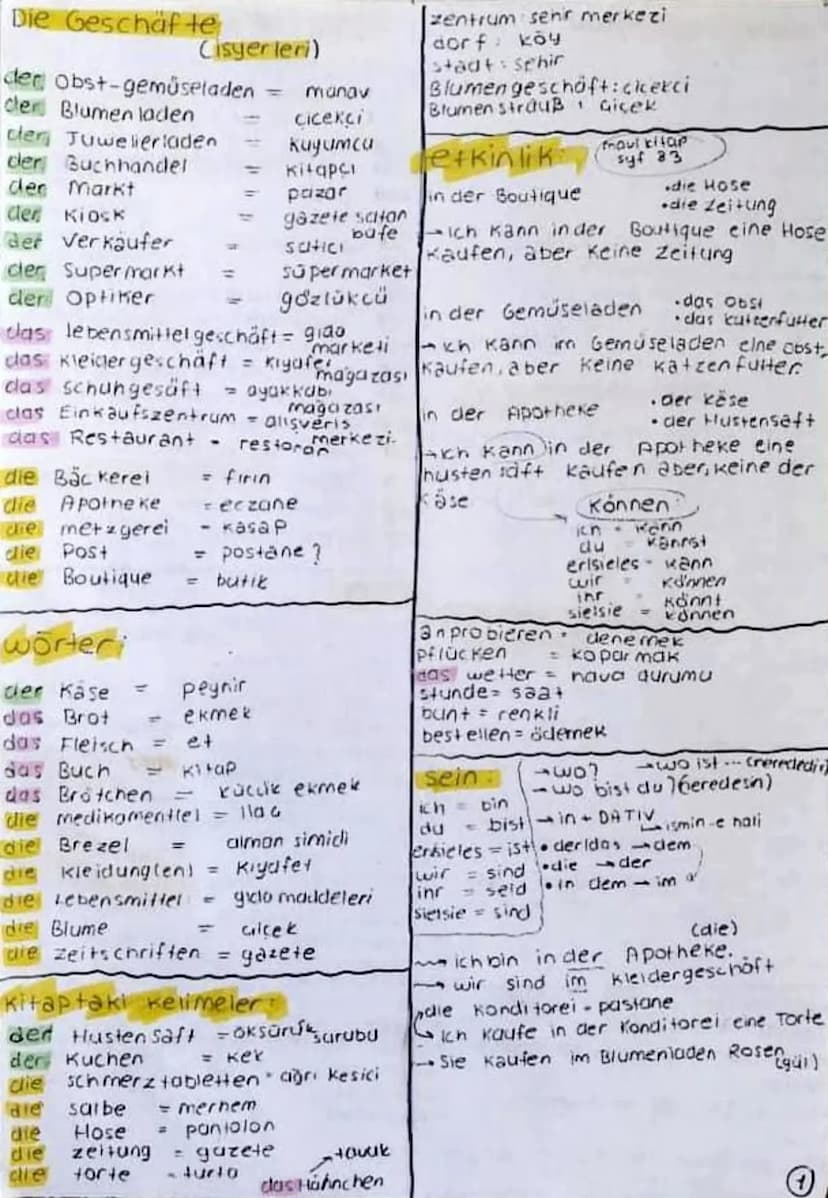 Die Geschäfte
(işyerleri)
der Obst-gemüseladen = manav
der Blumenladen = çiçekçi
der Juwelierladen = kuyumcu
der Buchhandel = kitapçı
der Markt = pazar
der Kiosk = gazete satan
büfe
der Verkäufer = satıcı
der Supermarkt = süpermarket
der Optiker = gözlükçü
das lebensmittelgeschäft = gıda
marketi
das kleidergeschäft = kıyafet
mağazası
das schuhgesäft = ayakkabı
mağazası
das Einkaufszentrum = alışveriş
merkezi
das Restaurant - restoran
die Bäckerei = fırın
die Apotheke = eczane
die metzgerei - kasap
die Post = postane ?
die Boutique = butik
wörter:
der Käse = peynir
das Brot = ekmek
das Fleisch = et
das Buch = kitap
das Brötchen = küçük ekmek
die medikamente(e) = ilaç
die Brezel = alman simidi
die kleidung(en) = kıyafet
die Lebensmittel = gıda maddeleri
die Blume = çiçek
die zeitschriften = gazete
kitaptaki kelimeler:
der Hustensaft = öksürük şurubu
der Kuchen = kek
die schmerztabletten = ağrı kesici
die salbe = merhem
die Hose = pantolon
die zeitung = gazete
die torte - turta
tavuk
das Hähnchen
zentrum: şehir merkezi
dorf: köy
stadt: şehir
Blumengeschäft: çiçekci
Blumenstrauß: Çiçek
etkinlik:
mavi kitap
syf 83
in der Boutique
•die Hose
•die Zeitung
→ich kann in der Boutique eine Hose
kaufen, aber keine Zeitung
in der Gemüseladen
•das Obst
•das katzenfutter
→ich kann im Gemüseladen eine obst
kaufen, aber keine katzenfutter
in der Apotheke
•der käse
•der Hustensaft
→ich kann in der Apotheke eine
hustensaft kaufen aber, keine der
käse
können:
ich = kann
du = kannst
er/sie/es - kann
wir = können
ihr = könnt
sie/sie = können
anprobieren = denemek
pflücken = koparmak
das wetter = hava durumu
stunde = saat
bunt = renkli
bestellen = ödemek
sein:
ich = bin
du = bist
er/sie/es = ist
wir = sind
ihr = seid
sie/sie = sind
→wo? →wo ist ... (nerededir)
→wo bist du? (neredesin)
→in + DATIV
ismin -e hali
•der/das →dem
•die →der
•in dem → im
(die)
→ ich bin in der Apotheke.
→ wir sind im kleidergeschäft
die konditorei - pastane
→ ich kaufe in der konditorei eine Torte
→ Sie kaufen im Blumenladen Rosen
(gül)
1